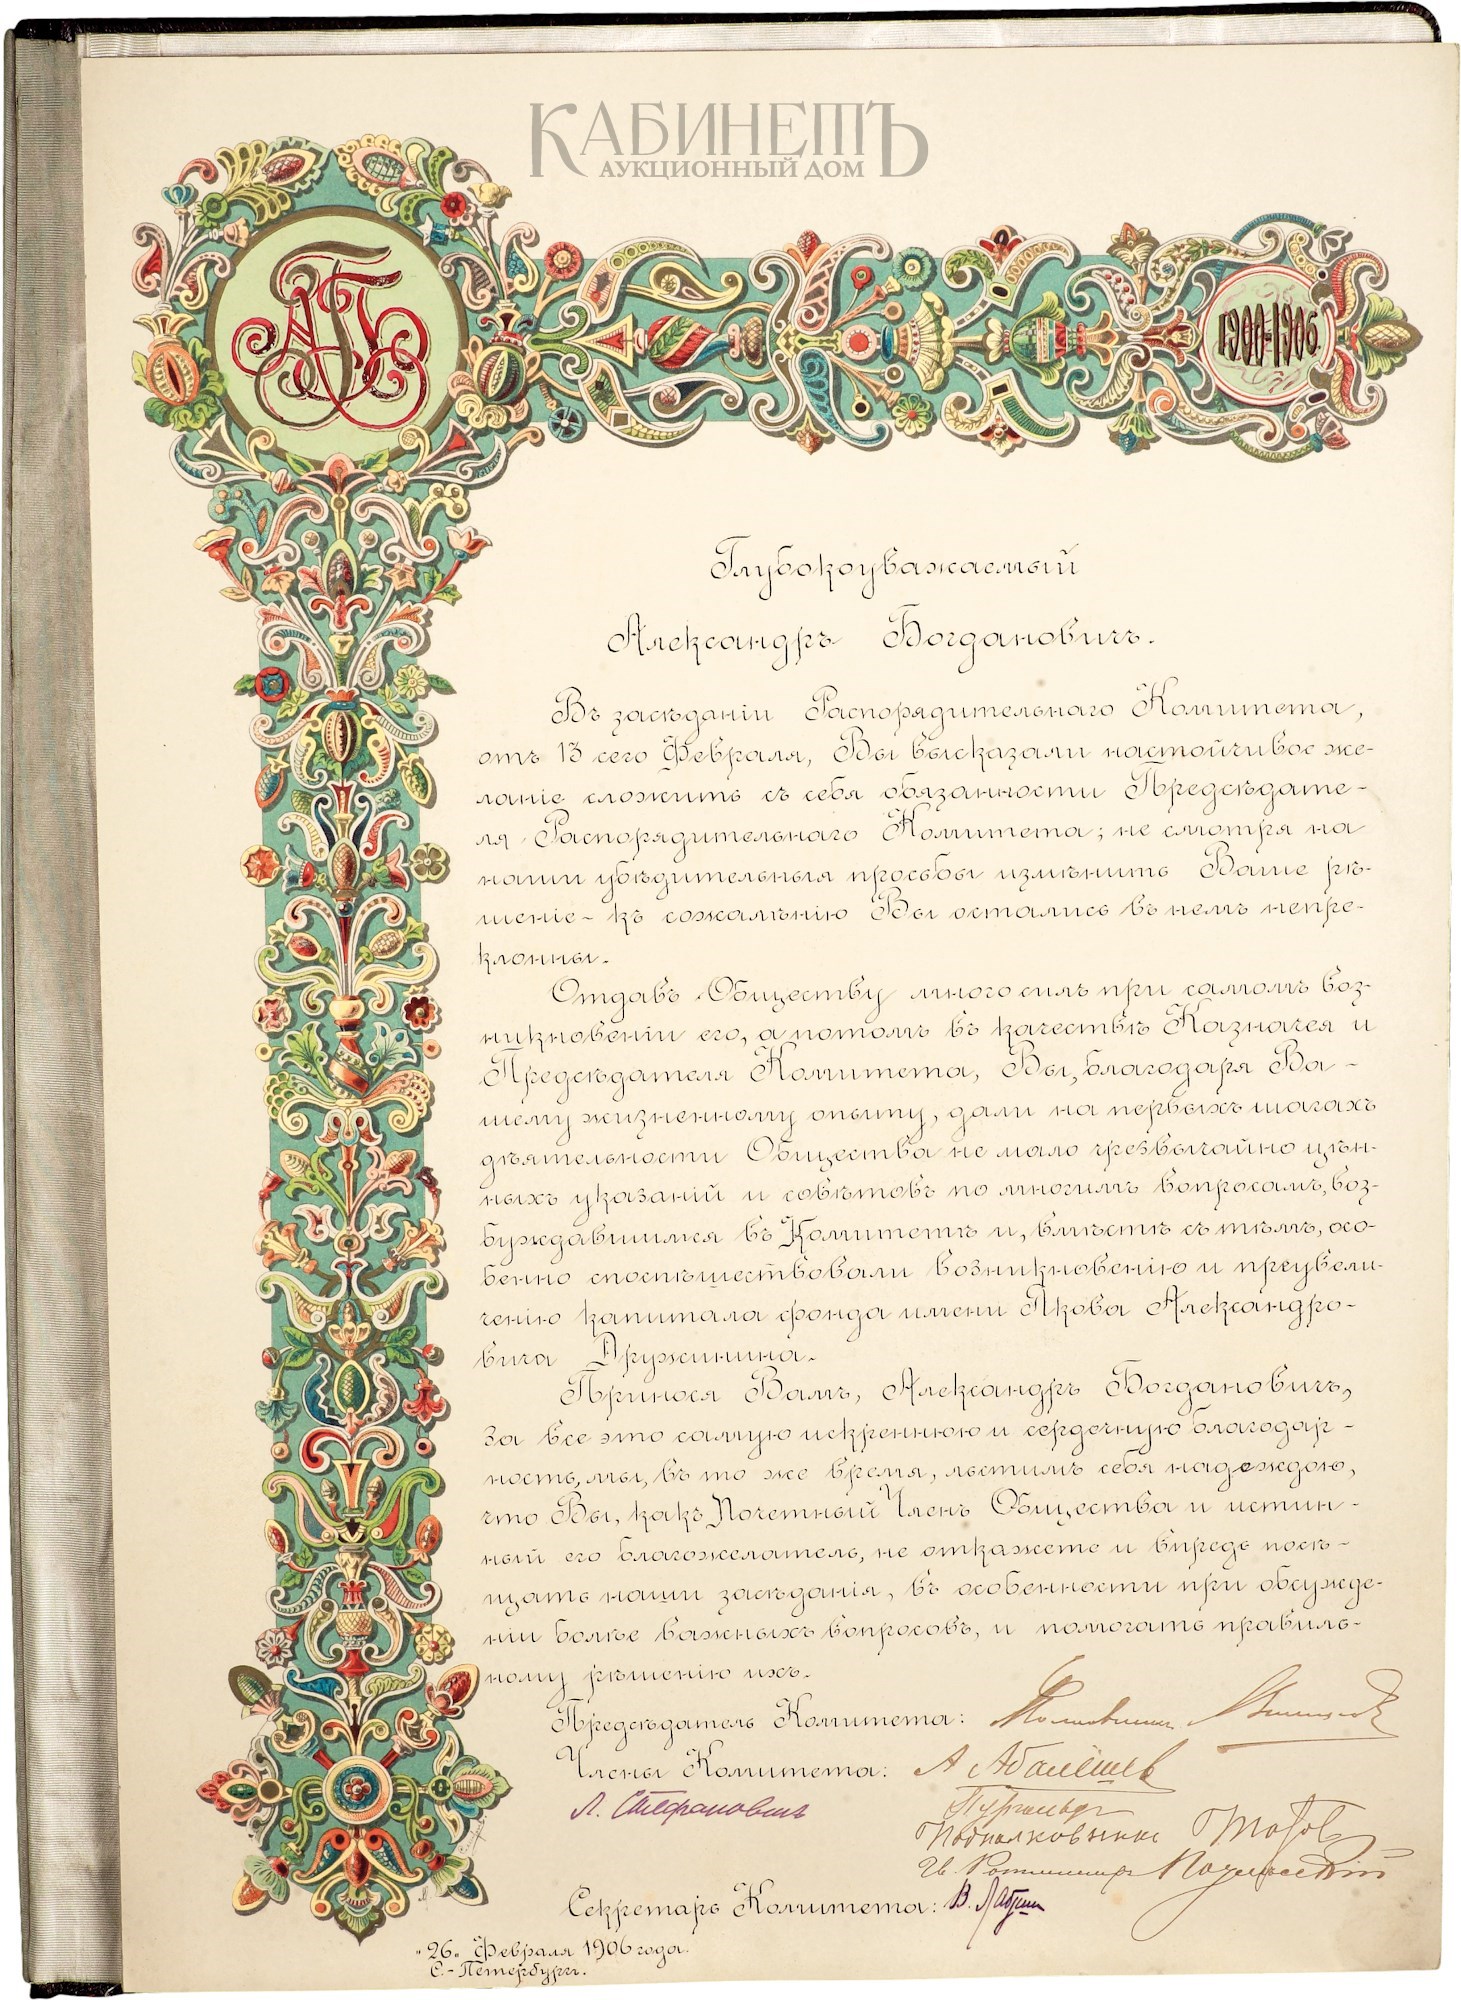 КАБИНЕТЪ
АУКЦИОННЫЙ ДОМ
1900-1906.
Глубокоуважаемый
Александръ Богдановичъ.
Въ засѣданіи Распорядительнаго Комитета,
отъ 13 сего Февраля, Вы высказали настойчивое же-
ланіе сложить съ себя обязанности Предсѣдате-
ля Распорядительнаго Комитета; не смотря на
наши убѣдительныя просьбы измѣнить Ваше рѣ-
шеніе - къ сожалѣнію Вы остались въ немъ непре-
клонны.
Отдавъ Обществу много силъ при самомъ воз-
никновеніи его, а потомъ въ качествѣ Казначея и
Предсѣдателя Комитета, Вы, благодаря Ва-
шему жизненному опыту, дали на первыхъ шагахъ
дѣятельности Общества не мало чрезвычайно цѣн-
ныхъ указаній и совѣтовъ по многимъ вопросамъ, воз-
буждавшимся въ Комитетѣ и, вмѣстѣ съ тѣмъ, осо-
бенно споспѣшествовали возникновенію и преувели-
ченію капитала фонда имени Якова Александро-
вича Дружинина.
Принося Вамъ, Александръ Богдановичъ,
за все это самую искреннюю и сердечную благодар-
ность, мы, въ то же время, льстимъ себя надеждою,
что Вы, какъ Почетный Членъ Общества и истин-
ный его благожелатель, не откажете и впредь посѣ-
щать наши засѣданія, въ особенности при обсужде-
ніи болѣе важныхъ вопросовъ, и помогать правиль-
ному рѣшенію ихъ.
Предсѣдатель Комитета: Полковникъ
Члены Комитета: А Абалёшев
Л. Стефановичъ
Пургольдъ
Подполковникъ
Гв. Ротмистръ
Секретарь Комитета: В.
"26" Февраля 1906 года.
С.-Петербургъ.